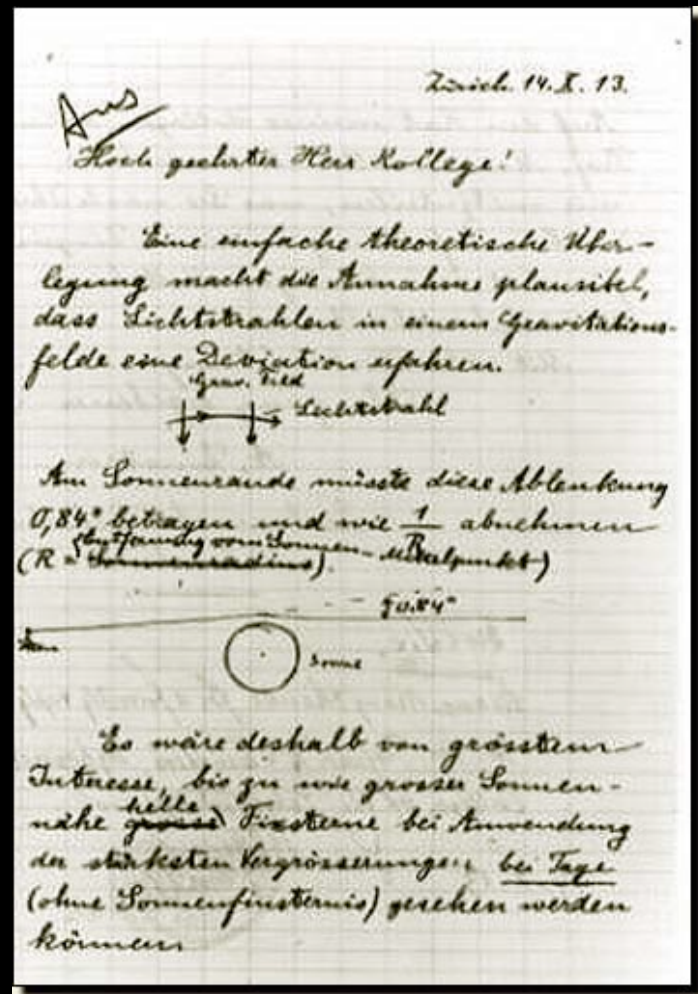 Zürich. 14. X. 13.
Aus
Hoch geehrter Herr Kollege!
Eine einfache theoretische Über-
legung macht die Annahme plausibel,
dass Lichtstrahlen in einem Gravitations-
felde eine Deviation erfahren.
Grav. Feld
Lichtstrahl
Am Sonnenrande müsste diese Ablenkung
0,84" betragen und wie 1/R abnehmen
Entfernung vom Sonnen-Mittelpunkt)
(R = Sonnenradius).
0.84"
Sonne
Es wäre deshalb von grösstem
Interesse, bis zu wie grosser Sonnen-
helle
nähe grosse Fixsterne bei Anwendung
der stärksten Vergrösserungen bei Tage
(ohne Sonnenfinsternis) gesehen werden
können.